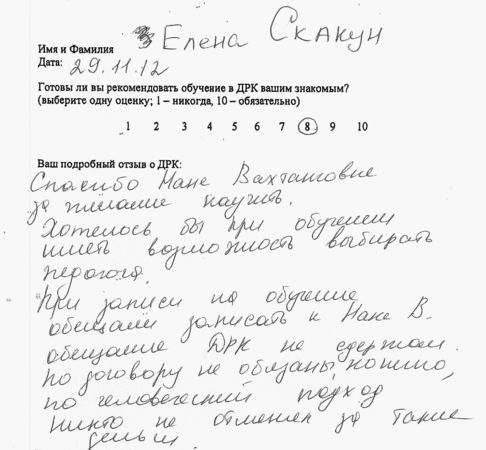 Имя и Фамилия Елена Скакун
Дата: 29.11.12
Готовы ли вы рекомендовать обучение в ДРК вашим знакомым?
(выберите одну оценку; 1 – никогда, 10 – обязательно)
1 2 3 4 5 6 7 8 9 10
Ваш подробный отзыв о ДРК:
Спасибо Нане Вахтанговне
за желание научить.
Хотелось бы при обучении
иметь возможность выбирать
педагога.
При записи на обучение
обещали записать к Нане В.
обещание ДРК не сдержал.
по договору не обязаны, конечно,
но человеческий подход
никто не отменял за такие
деньги.